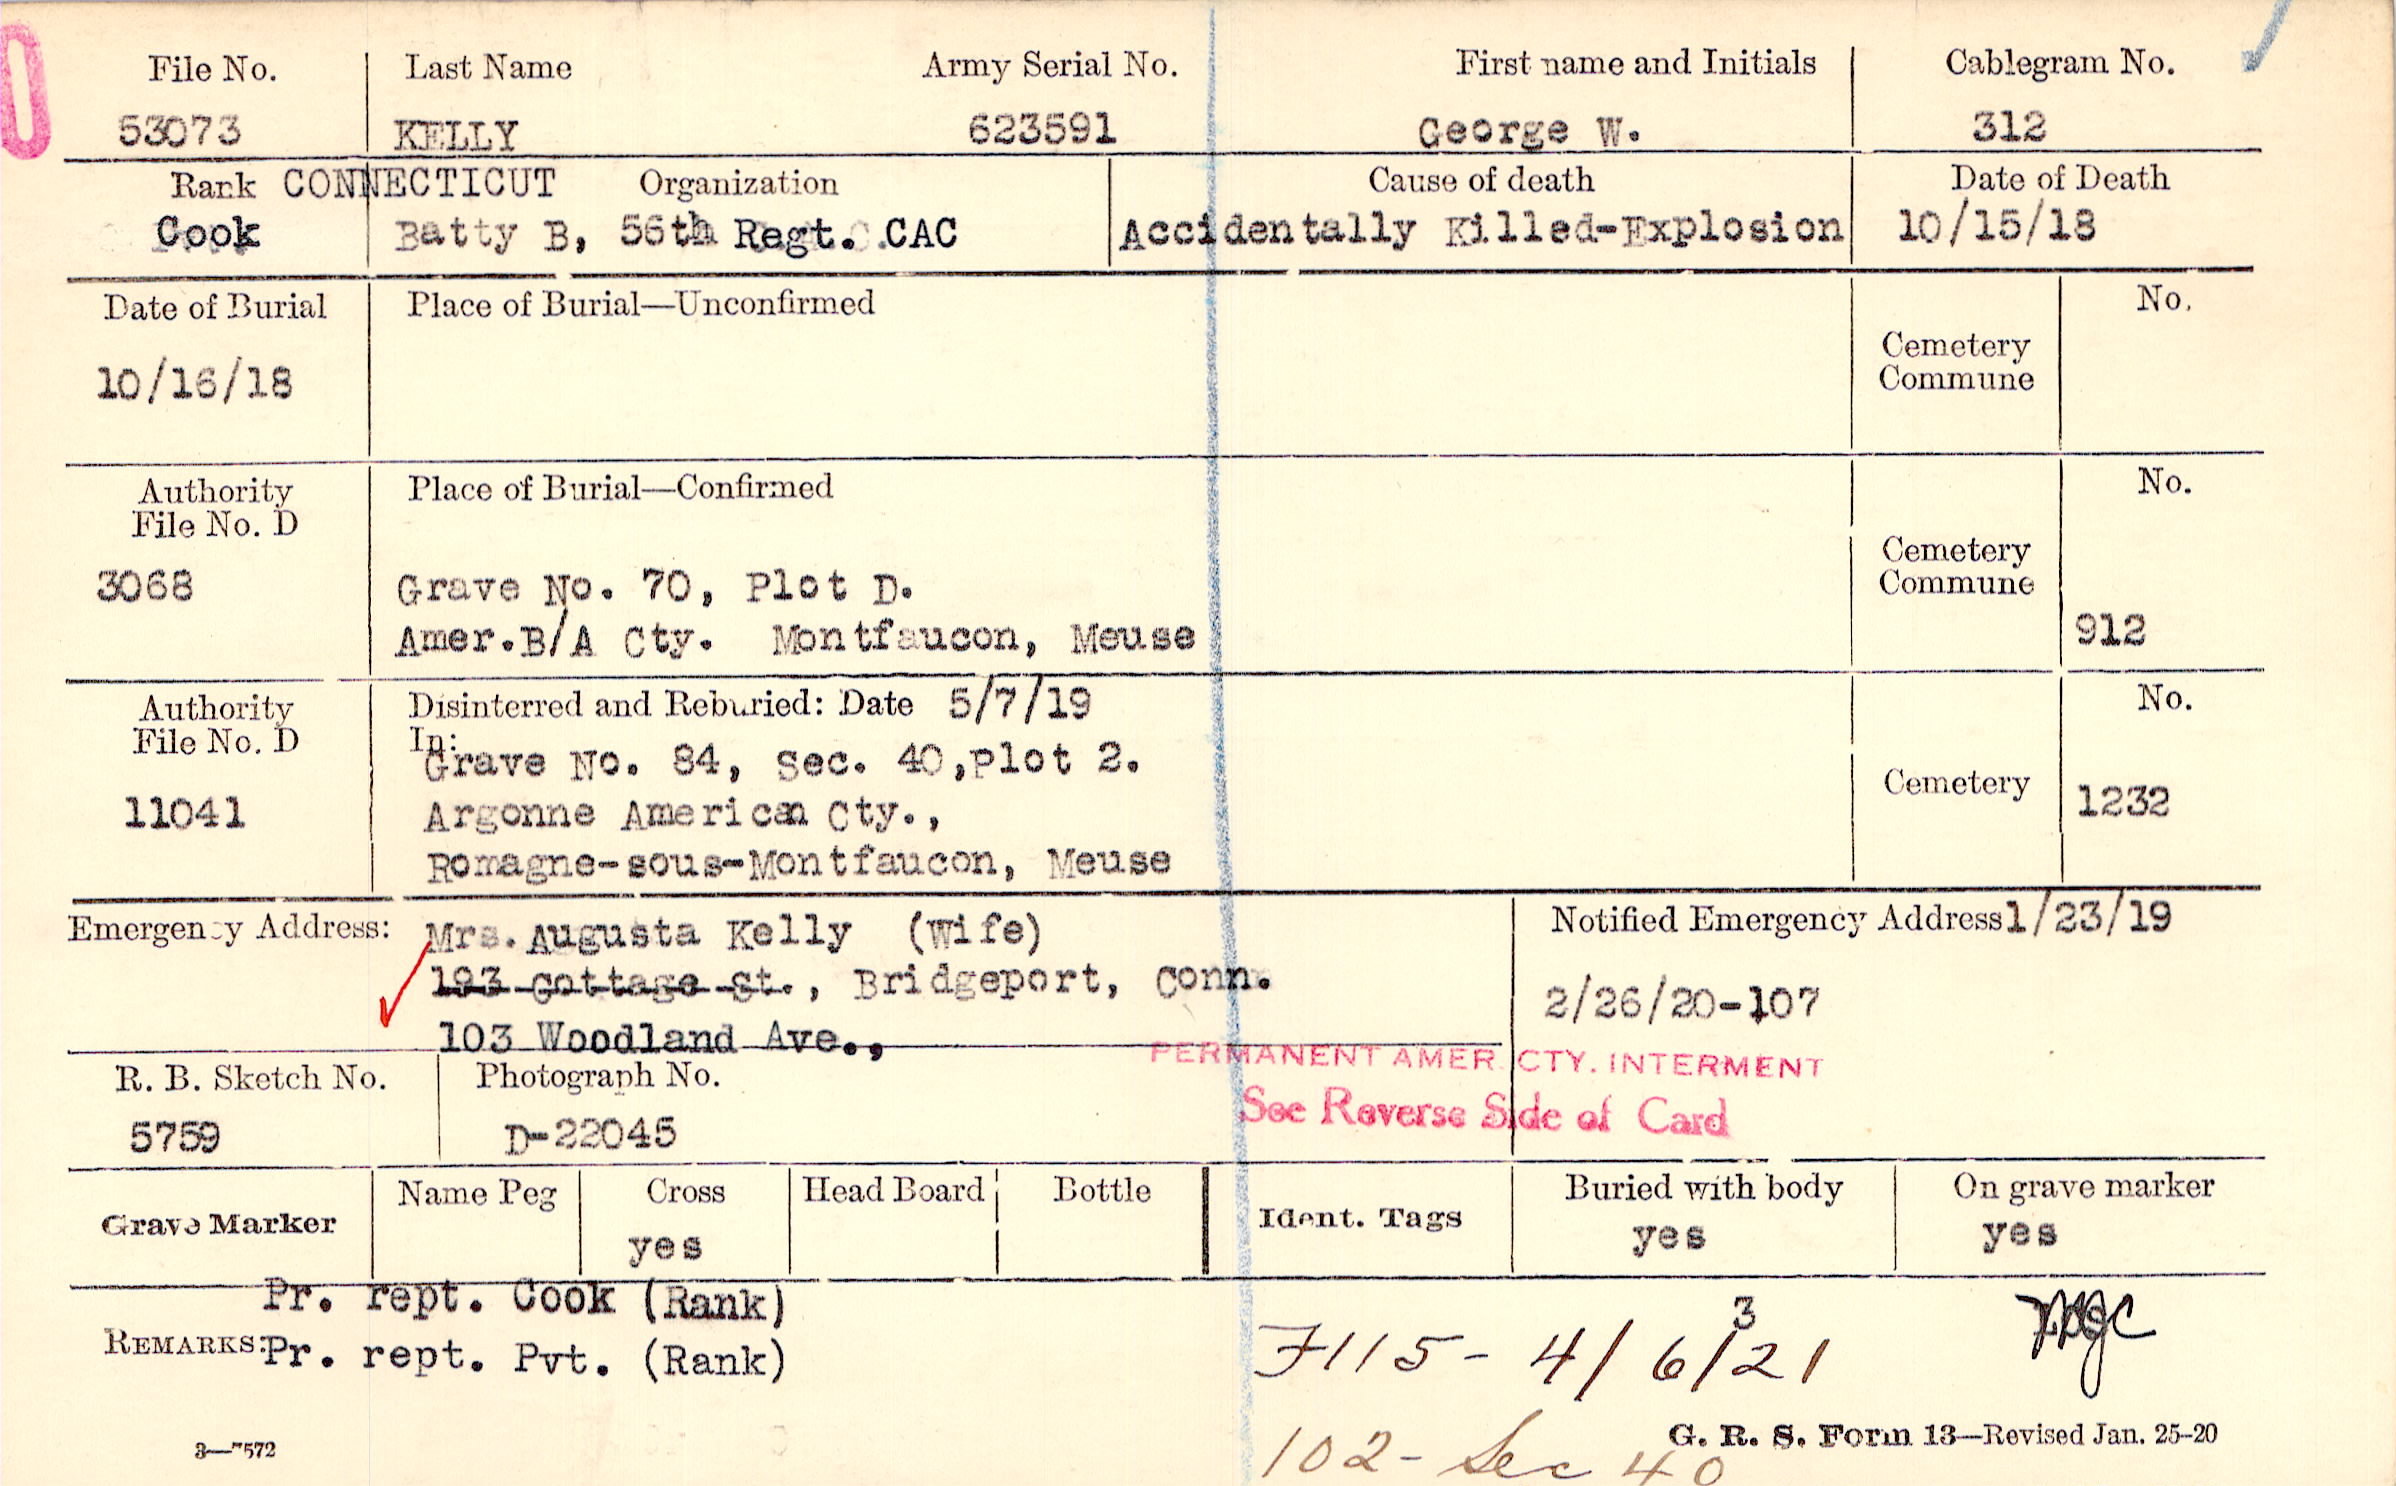 File No. Last Name Army Serial No. First name and Initials Cablegram No.
53073 KELLY 623591 George W. 312
Rank CONNECTICUT Organization Cause of death Date of Death
Cook Batty B, 56th Regt. CAC Accidentally Killed-Explosion 10/15/18
Date of Burial Place of Burial—Unconfirmed No.
10/16/18 Cemetery
Commune
Authority Place of Burial—Confirmed No.
File No. D
3068 Grave No. 70, Plot D. Cemetery
Commune
Amer.B/A Cty. Montfaucon, Meuse 912
Authority Disinterred and Reburied: Date 5/7/19 No.
File No. D In:
Grave No. 84, Sec. 40,Plot 2.
Cemetery
11041 Argonne American Cty., 1232
Romagne-sous-Montfaucon, Meuse
Emergency Address: Mrs. Augusta Kelly (Wife) Notified Emergency Address 1/23/19
193 Cottage St., Bridgeport, Conn. 2/26/20-107
103 Woodland Ave.,
PERMANENT AMER. CTY. INTERMENT
R. B. Sketch No. Photograph No.
See Reverse Side of Card
5759 D-22045
Grave Marker Name Peg Cross Head Board Bottle Ident. Tags Buried with body On grave marker
yes yes yes
Pr. rept. Cook (Rank)
REMARKS: Pr. rept. Pvt. (Rank)
3
F115- 4/6/21
G. R. S. Form 13—Revised Jan. 25-20
3—7572
102- Sec 40